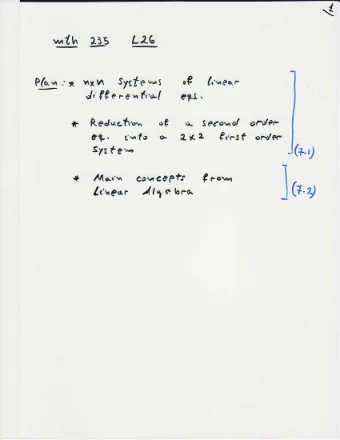 1
mth 235 L26
Plan: * nxn systems of linear
differential eqs.
* Reduction of a second order
eq. into a 2x2 first order
system
(7.1)
* Main concepts from
Linear Algebra
(7.2)